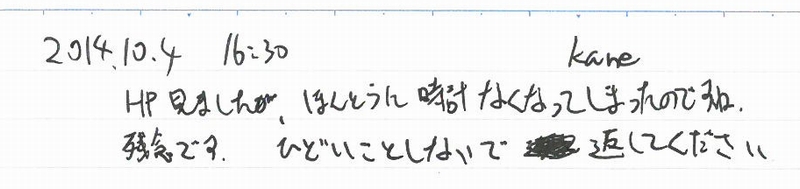 2014.10.4 16:30 kane
HP見ましたが、ほんとうに時計なくなってしまったのですね.
残念です. ひどいことしないで 返してください